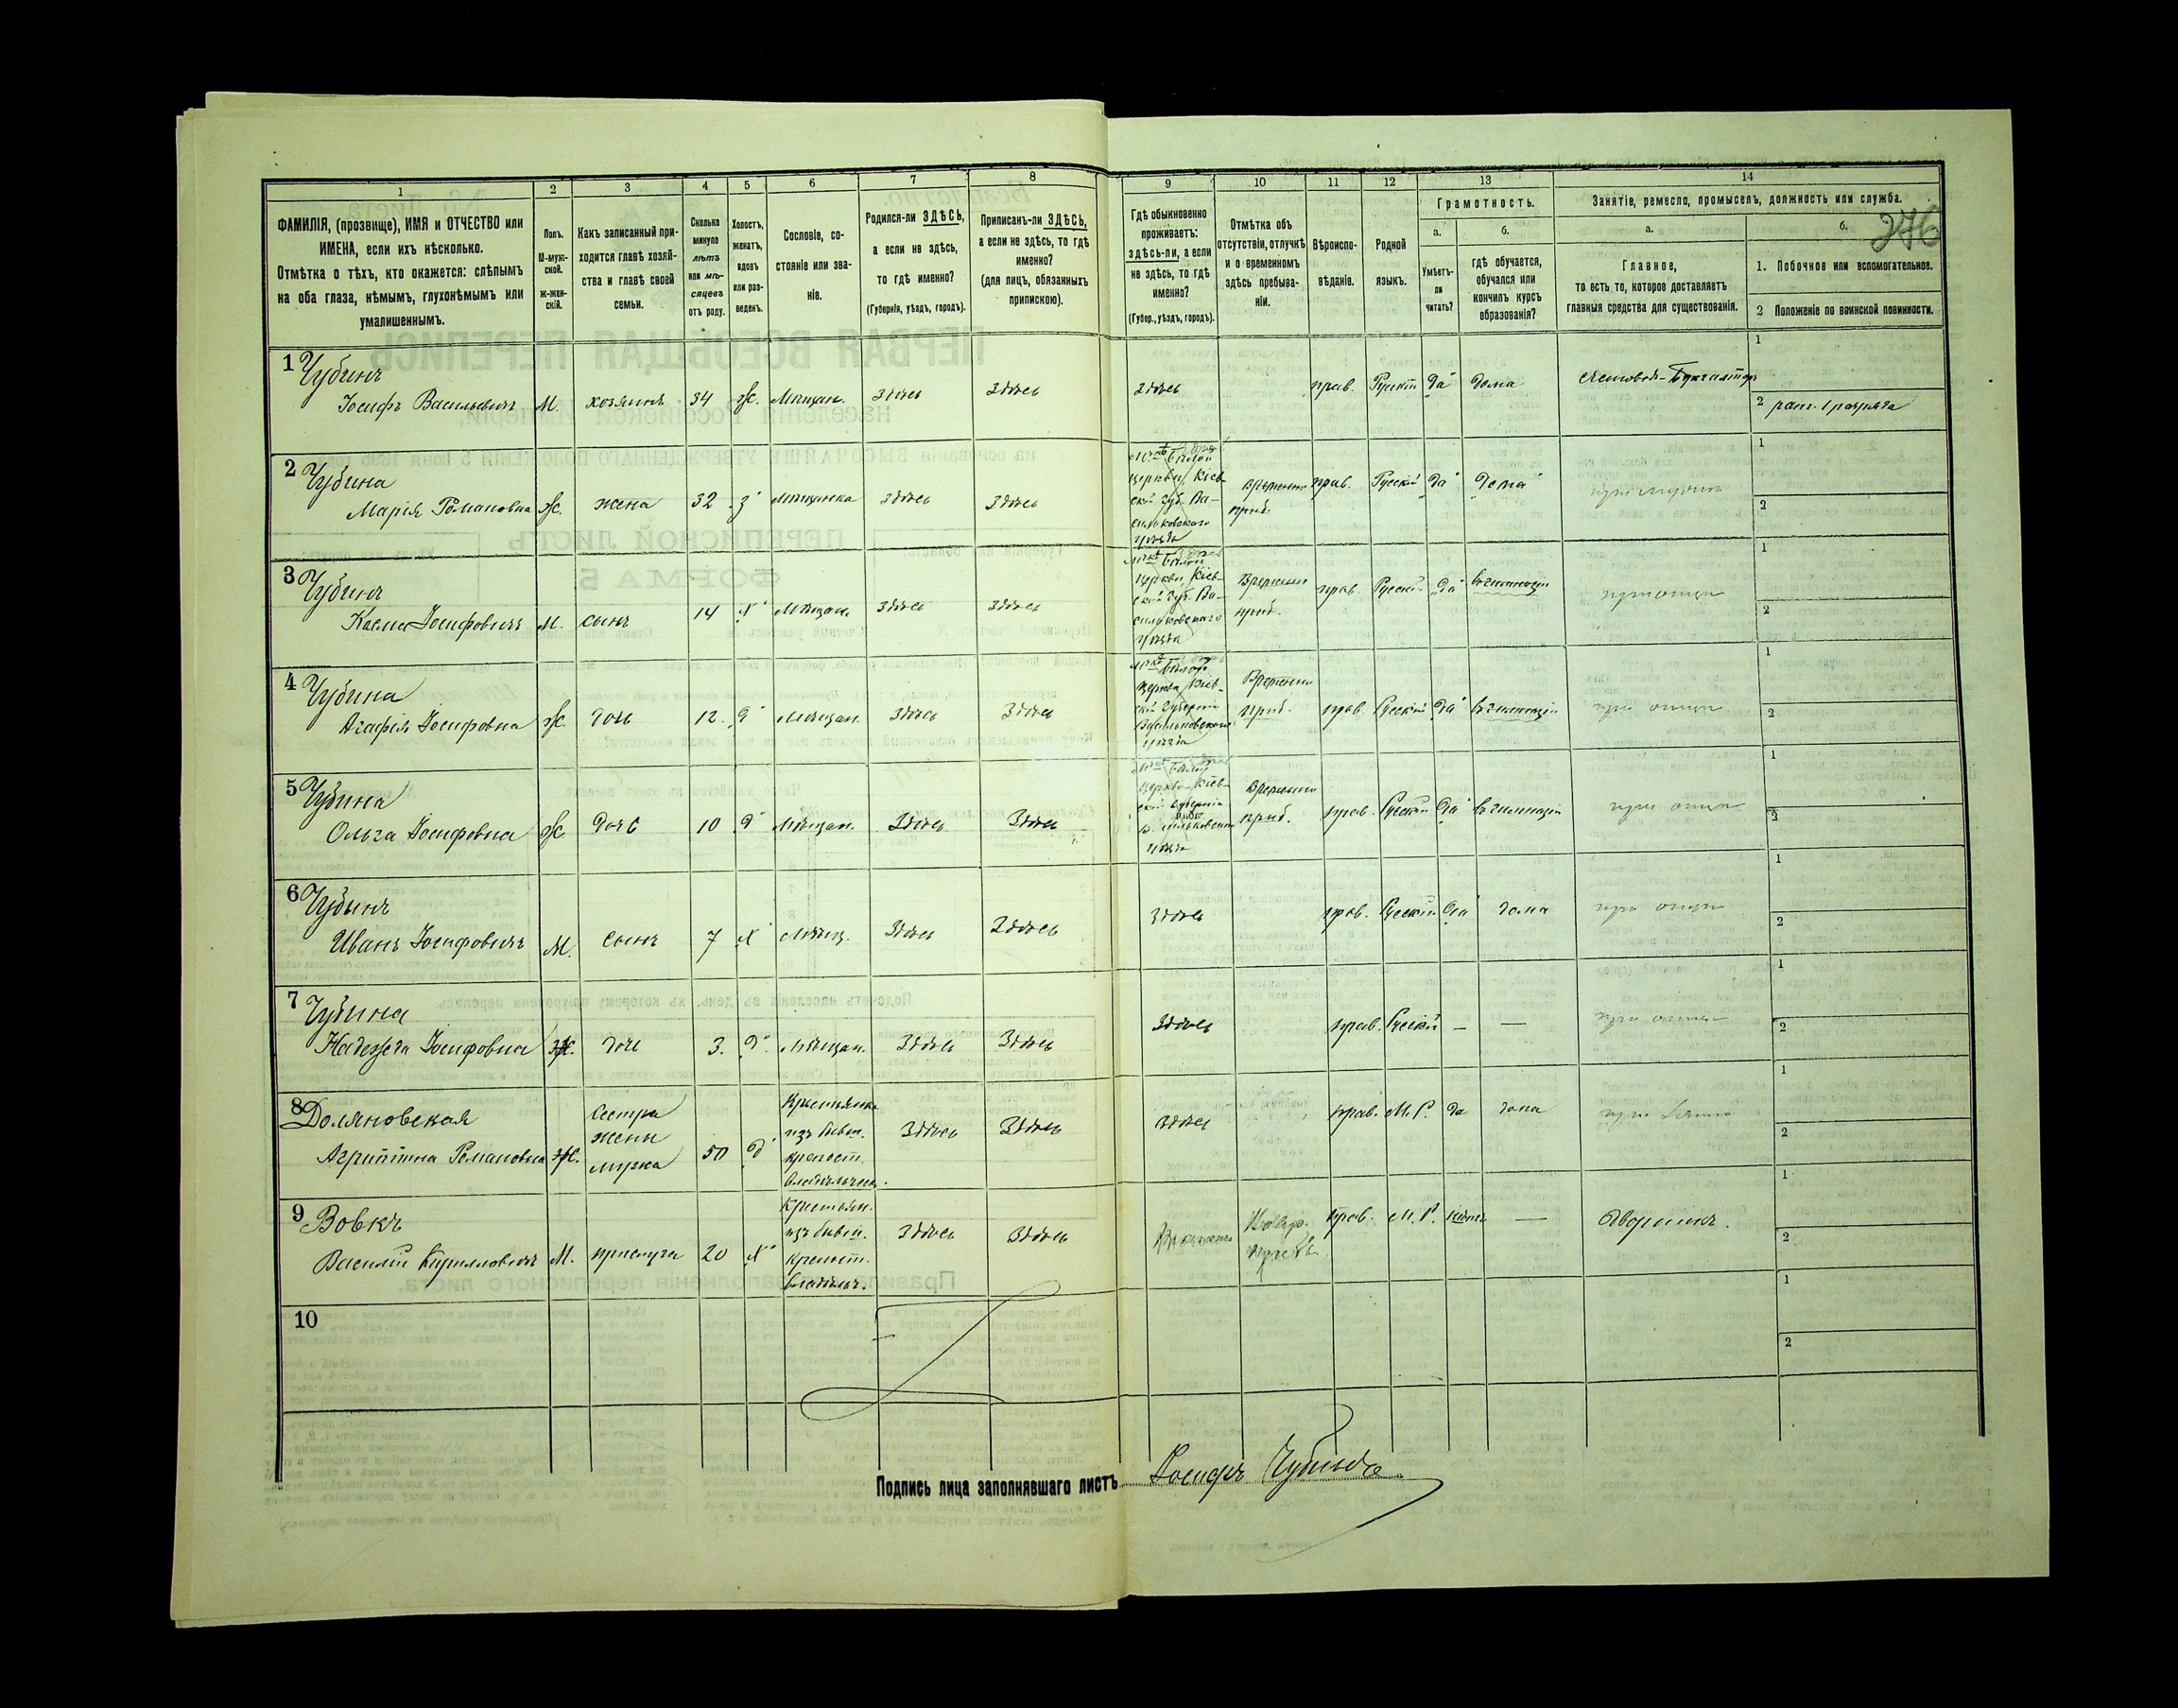 276
1 2 3 4 5 6 7 8 9 10 11 12 13 14
ФАМИЛІЯ, (прозвище), ИМЯ и ОТЧЕСТВО или
ИМЕНА, если ихъ нѣсколько.
Отмѣтка о тѣхъ, кто окажется: слѣпымъ
на оба глаза, нѣмымъ, глухонѣмымъ или
умалишеннымъ.
Полъ.
М-муж-
ской.
ж-жен-
скій.
Какъ записанный при-
ходится главѣ хозяй-
ства и главѣ своей
семьи.
Сколько
минуло
лѣтъ
или мѣ-
сяцевъ
отъ роду.
Холостъ,
женатъ,
вдовъ
или раз-
веденъ.
Сословіе, со-
стояніе или зва-
ніе.
Родился-ли ЗДѢСЬ,
а если не здѣсь,
то гдѣ именно?
(Губернія, уѣздъ, городъ).
Приписанъ-ли ЗДѢСЬ,
а если не здѣсь, то гдѣ
именно?
(для лицъ, обязанныхъ
припискою).
Гдѣ обыкновенно
проживаетъ:
здѣсь-ли, а если
не здѣсь, то гдѣ
именно?
(Губер., уѣздъ, городъ).
Отмѣтка объ
отсутствіи, отлучкѣ
и о временномъ
здѣсь пребыва-
ніи.
Вѣроиспо-
вѣданіе.
Родной
языкъ.
Грамотность.
а.
Умѣетъ-
ли
читать?
б.
гдѣ обучается,
обучался или
кончилъ курсъ
образованія?
Занятіе, ремесло, промыселъ, должность или служба.
а.
Главное,
то есть то, которое доставляетъ
главныя средства для существованія.
б.
1. Побочное или вспомогательное.
2 Положеніе по воинской повинности.
1 Чубинъ
Іосифъ Васильевичъ М. хозяинъ 34 ж. Мѣщан. Здѣсь Здѣсь Здѣсь прав. Русскій да дома Счетовод-Бухгалтеръ
1
2 рат. 1 разряда
2 Чубина
Марія Романовна Ж. жена 32 з Мѣщанка здѣсь здѣсь
Бѣлой
Церкви, Кіев-
ской Губ. Ва-
сильковскаго
уѣзда
Временно
приб.
прав. Русскій да дома при мужѣ
1
2
3 Чубинъ
Косма Іосифовичъ М. сынъ 14 х Мѣщан. здѣсь здѣсь
Бѣлой
Церкви, Кіев-
ской Губ. Ва-
сильковскаго
уѣзда
Временно
приб.
прав. Русскій да въ гимназіи при отцѣ
1
2
4 Чубина
Агафія Іосифовна Ж. дочь 12. д Мѣщан. Здѣсь Здѣсь
Бѣлой
Церкви Кіев-
ской Губерніи
Васильковскаго
уѣзда
Временно
приб.
прав. Русскій да въ гимназіи при отцѣ
1
2
5 Чубина
Ольга Іосифовна Ж. дочь 10 д Мѣщан. Здѣсь Здѣсь
Бѣлой
Церкви Кіев-
ской Губерніи
уѣзда
Временно
приб.
прав. Русскій да въ гимназіи при отцѣ
1
2
6 Чубынъ
Иванъ Іосифовичъ М. сынъ 7 х Мѣщ. Здѣсь Здѣсь Здѣсь прав. Русскій да дома при отцѣ
1
2
7 Чубина
Надежда Іосифовна Ж. дочь 3. д. Мѣщан. Здѣсь Здѣсь Здѣсь прав. Русскій — — при отцѣ
1
2
8 Доляновская
Агриппина Романовна Ж.
Сестра
жены
мужа
50 д
Крестьянка
изъ бывш.
крепост.
владѣльческ.
Здѣсь Здѣсь Здѣсь прав. М. Р. да дома
1
2
9 Вовкъ
Василій Кирилловичъ М. прислуга 20 х
Крестьян.
изъ бывш.
крепост.
владѣльч.
Здѣсь Здѣсь прав. М. Р. — Дворникъ.
1
2
10
1
2
Подпись лица заполнявшаго листъ Іосифъ Чубинъ